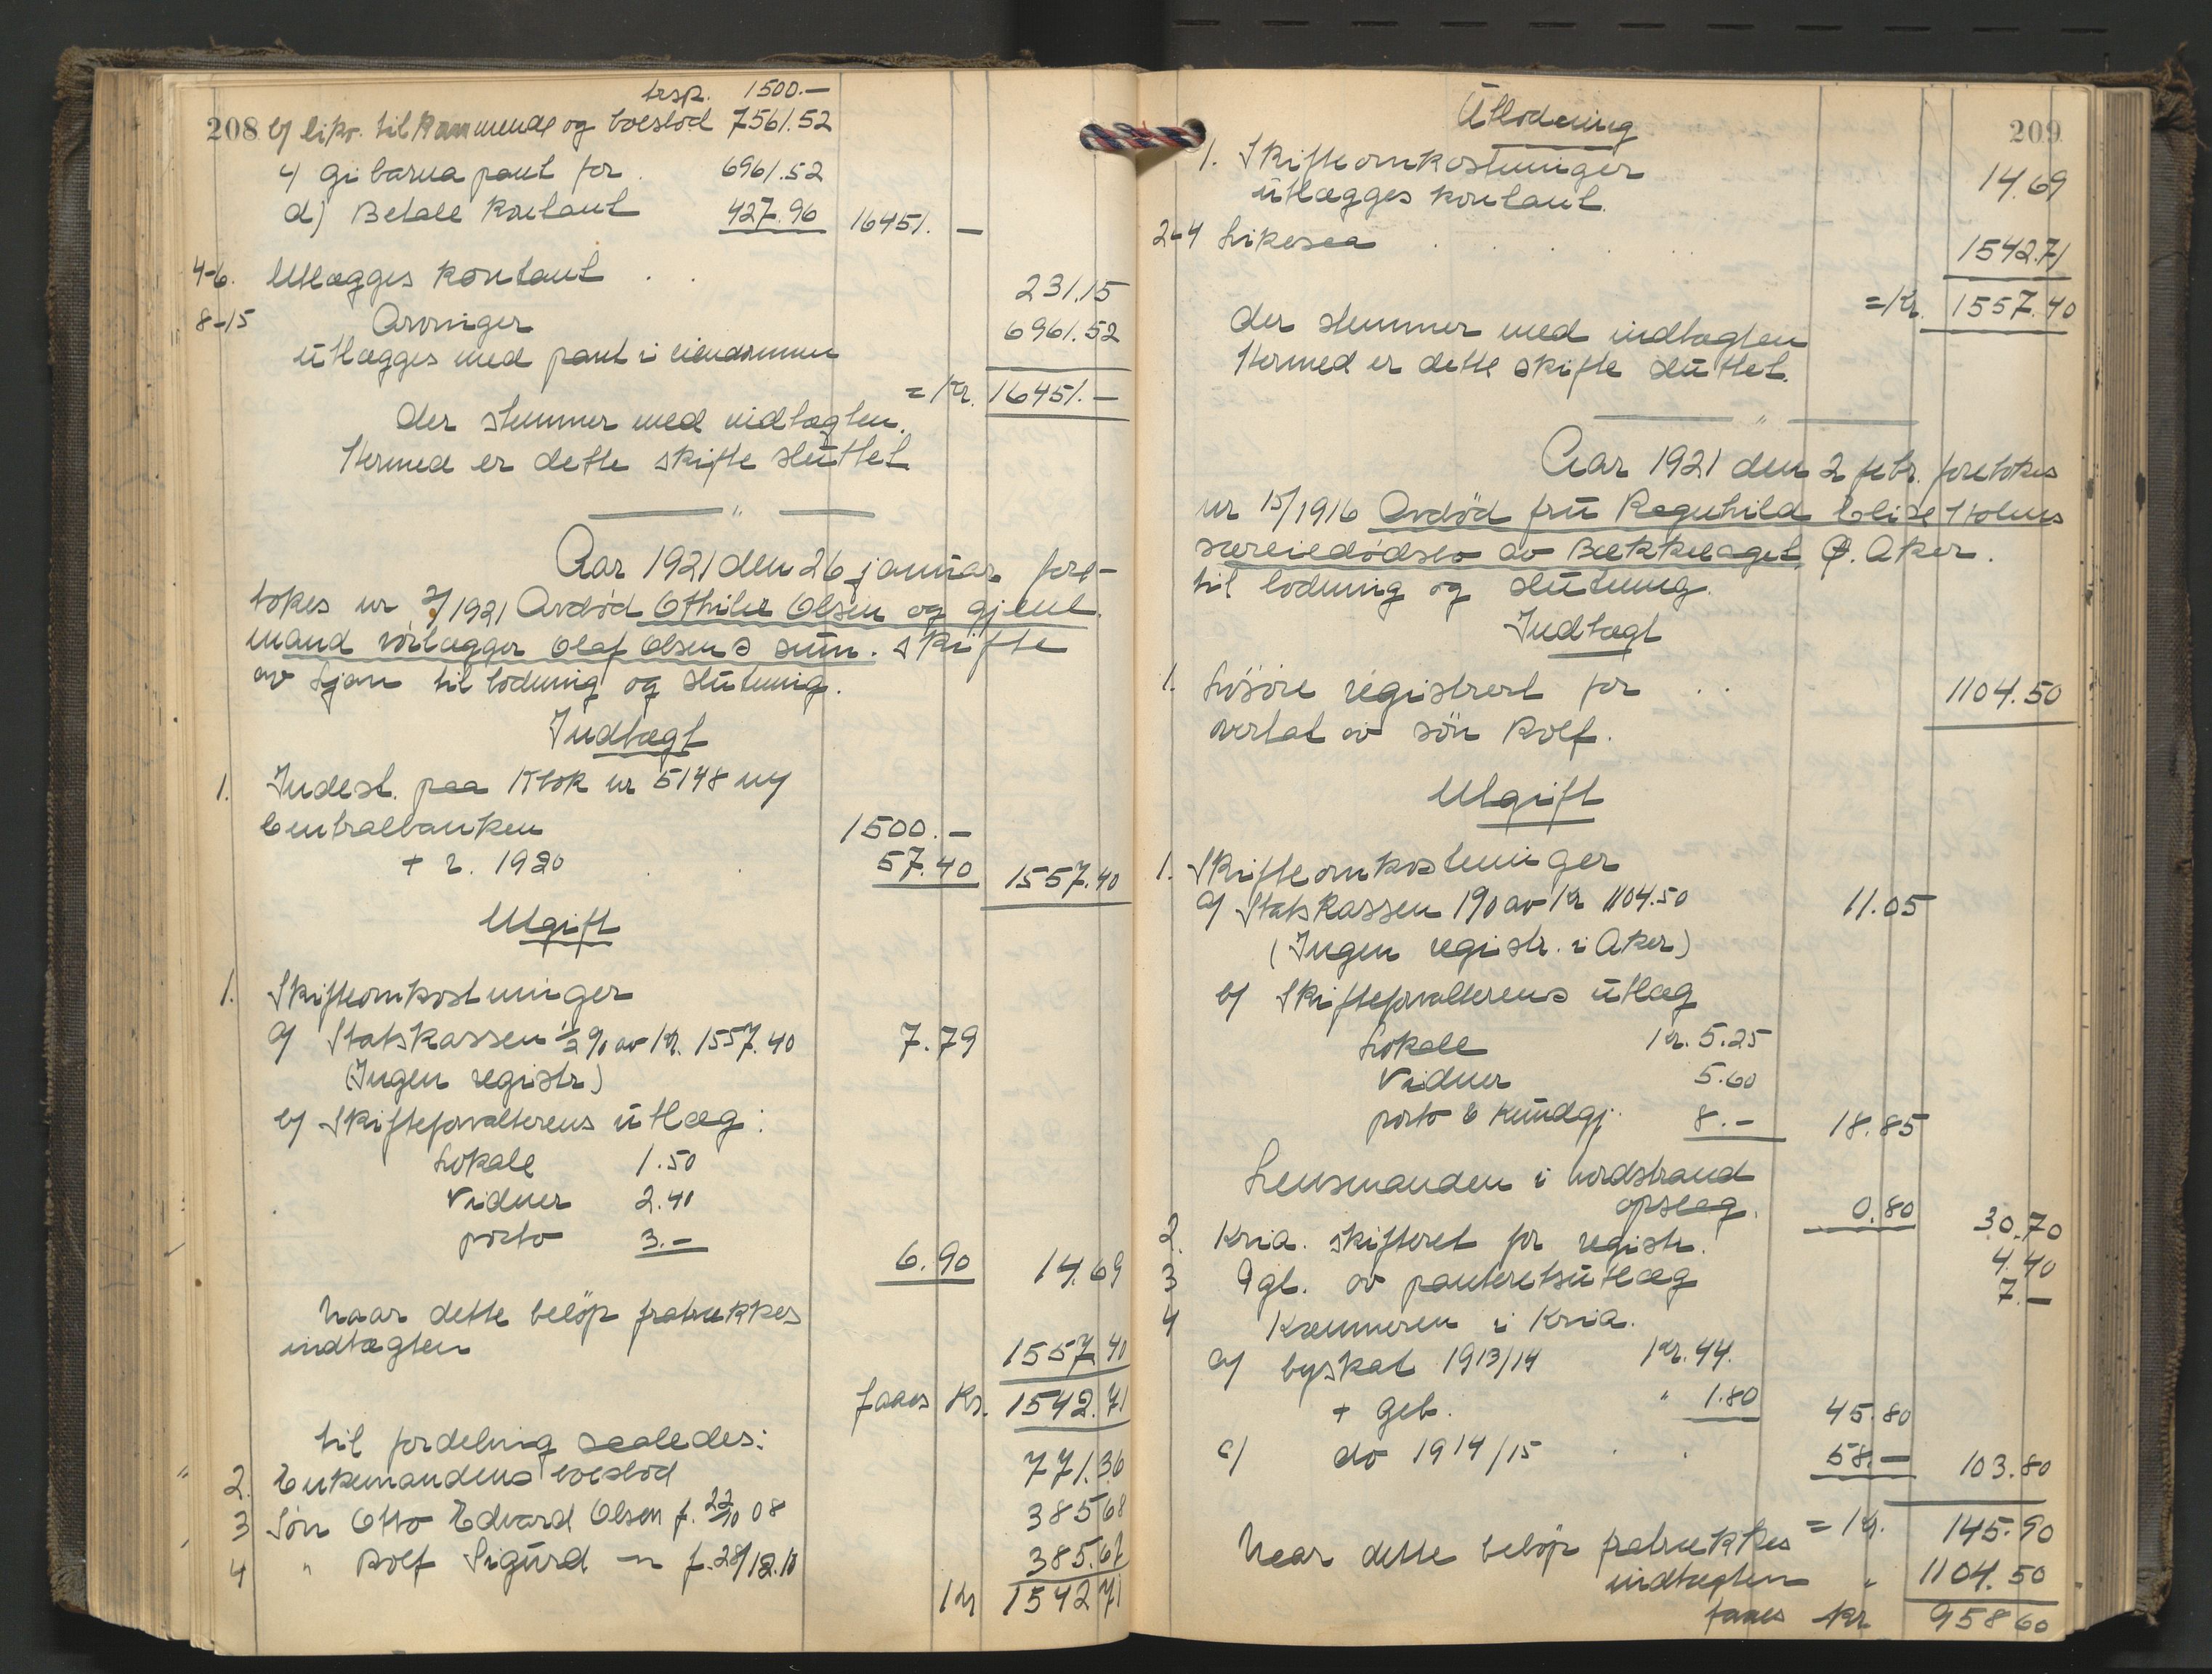 208
trsp. 1500.—
b) likv. til Rammende og boeslod 7561.52
c) gi barna pant for . 6961.52
d) Betale kontant 427.96 16451. —
4-6. Utlægges kontant . . 231.15
8-15 Arvinger 6961.52
utlægges med pant i eiendommen
= Kr. 16451.—
der stemmer med indtægten.
Hermed er dette skifte sluttet
— " —
Aar 1921 den 26 januar fore-
tokes nr 2/1921 Avdød Othilie Olsen og gjenl.
mand vörlægger Olaf Olsens sam. skifte
av Ljan til lodning og slutning.
Indtægt
1. Indest. paa Kbok nr 5148 ny
Centralbanken 1500.—
+ r. 1920 . . 57.40 1557.40
Utgift
1. Skifteomkostninger
a) Statskassen ½ % av Kr. 1557.40 7.79
(Ingen registr)
b) Skifteforvalterens utlæg:
Lokale 1.50
Vidner 2.40
porto 3.—
6.90 14.69
Naar dette beløp fratrækkes
indtægten 1557.40
faaes Kr. 1542.71
til fordeling saaledes:
" 2. Enkemandens boeslod 771.36
3 Søn Otto Edvard Olsen f. 22/10 08 385.68
4 " Rolf Sigurd — f. 28/12.10 385.67
Kr 1542 71
209
Utlodning
1. Skifteomkostninger
utlægges kontant. 14.69
2-4 Likesaa . . . . 1542.71
= Kr. 1557.40
der stemmer med indtægten
Hermed er dette skifte sluttet.
— " —
Aar 1921 den 2 febr. foretokes
nr 15/1916 Avdød fru Ragnhild Elise Holms
særeiedødsbo av Bækkelaget, Ø. Aker.
til lodning og slutning.
Indtægt
1. Løsøre registrert for . . 1104.50
overtat av søn Rolf.
Utgift
1. Skifteomkostninger
a) Statskassen 1% av Kr 1104.50 11.05
(Ingen registr. i Aker)
b) Skifteforvalterens utlæg
Lokale Kr. 5.25
Vidner 5.60
porto & kundgj. 8.— 18.85
Lensmanden i Nordstrand
opslag. 0.80 30.70
2. Kria. skifteret for registr. 4.40
3 Dgl. av panteretsutlæg 7.—
4 Kæmneren i Kria.
a) byskat 1913/14 Kr. 44.
+ geb. " 1.80 45.80
c) do 1914/15 . . 58.— 103.80
= Kr. 145.90
Naar dette beløp fratrækkes
indtægten " 1104.50
faaes Kr 958 60